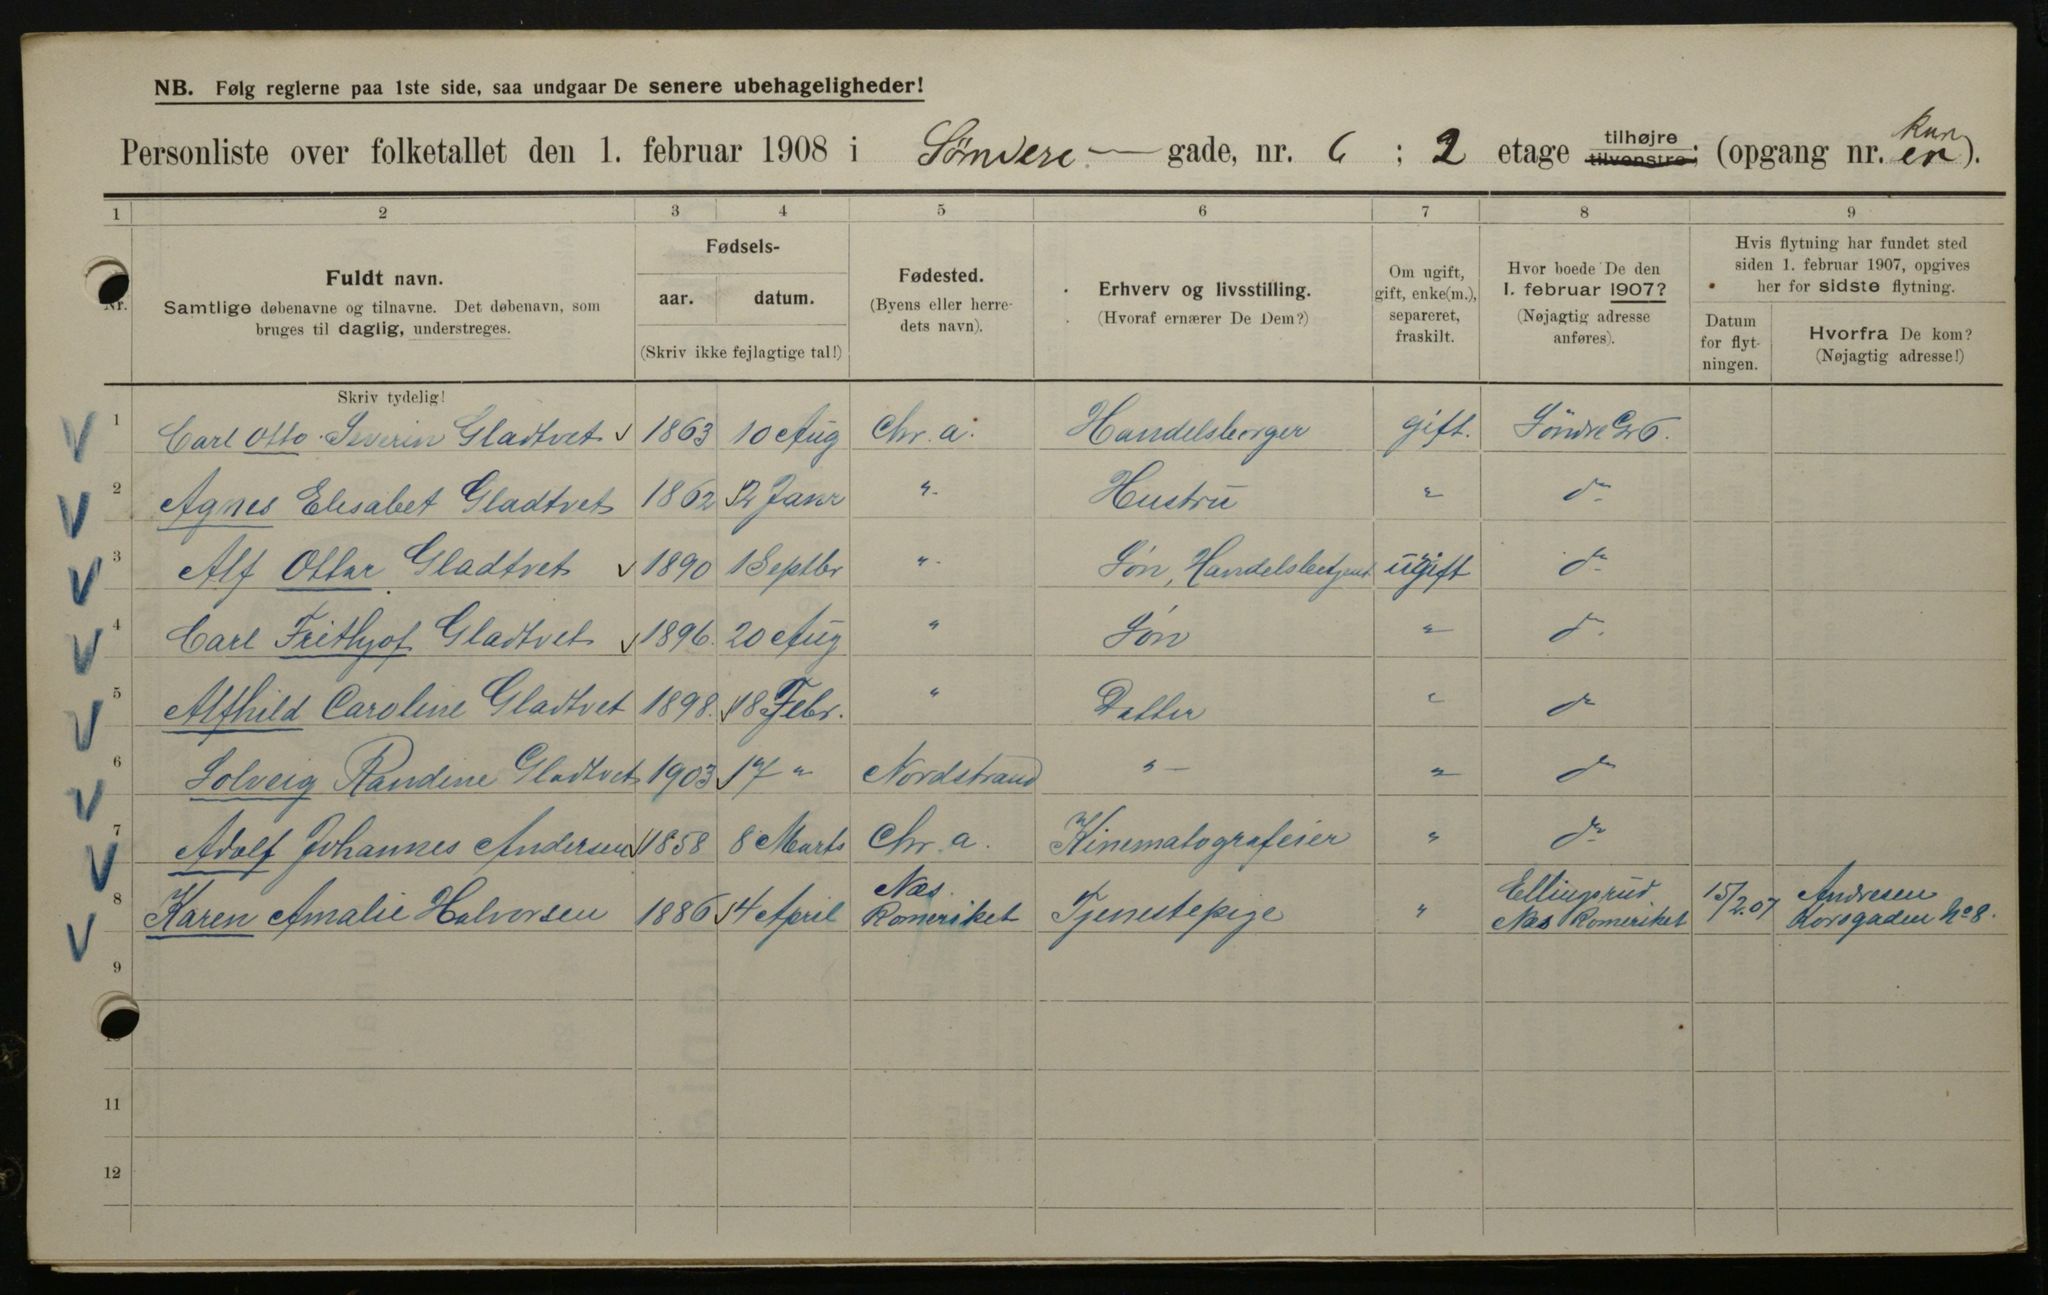 NB. Følg reglerne paa 1ste side, saa undgaar De senere ubehageligheder!
Personliste over folketallet den 1. februar 1908 i Søndere gade, nr. 6 ; 2 etage tilhøjre tilvenstre; (opgang nr. kun en).
1 2 3 4 5 6 7 8 9
Nr.
Fuldt navn.
Samtlige døbenavne og tilnavne. Det døbenavn, som
bruges til daglig, understreges.
Fødsels-
aar. datum.
(Skriv ikke fejlagtige tal!)
Fødested.
(Byens eller herre-
dets navn).
Erhverv og livsstilling.
(Hvoraf ernærer De Dem?)
Om ugift,
gift, enke(m.),
separeret,
fraskilt.
Hvor boede De den
1. februar 1907?
(Nøjagtig adresse
anføres).
Hvis flytning har fundet sted
siden 1. februar 1907, opgives
her for sidste flytning.
Datum
for flyt-
ningen.
Hvorfra De kom?
(Nøjagtig adresse!)
Skriv tydelig!
1 Carl Otto Severin Gladtvet 1863 10 Aug Chr.a. Handelsborger gift. Söndre G 6.
2 Agnes Elisabet Gladtvet 1862 12 Janr " Hustru " do
3 Alf Ottar Gladtvet 1890 1 Septbr " Sön, Handelsbetjent ugift do
4 Carl Frithjof Gladtvet 1896. 20 Aug " Sön " do
5 Alfhild Caroline Gladtvet 1898. 18 Febr. " Datter " do
6 Solveig Randine Gladtvet 1903 17 " Nordstrand " " do
7 Adolf Johannes Andersen 1858 8 Marts Chr.a. Kinematografeier " do
8 Karen Amalie Halvorsen 1886 4 April Næs. Romeriket Tjenestepige " Ellingsrud Næs Romeriket 15/2.07 Andresen Korsgaden No 8.
9
10
11
12